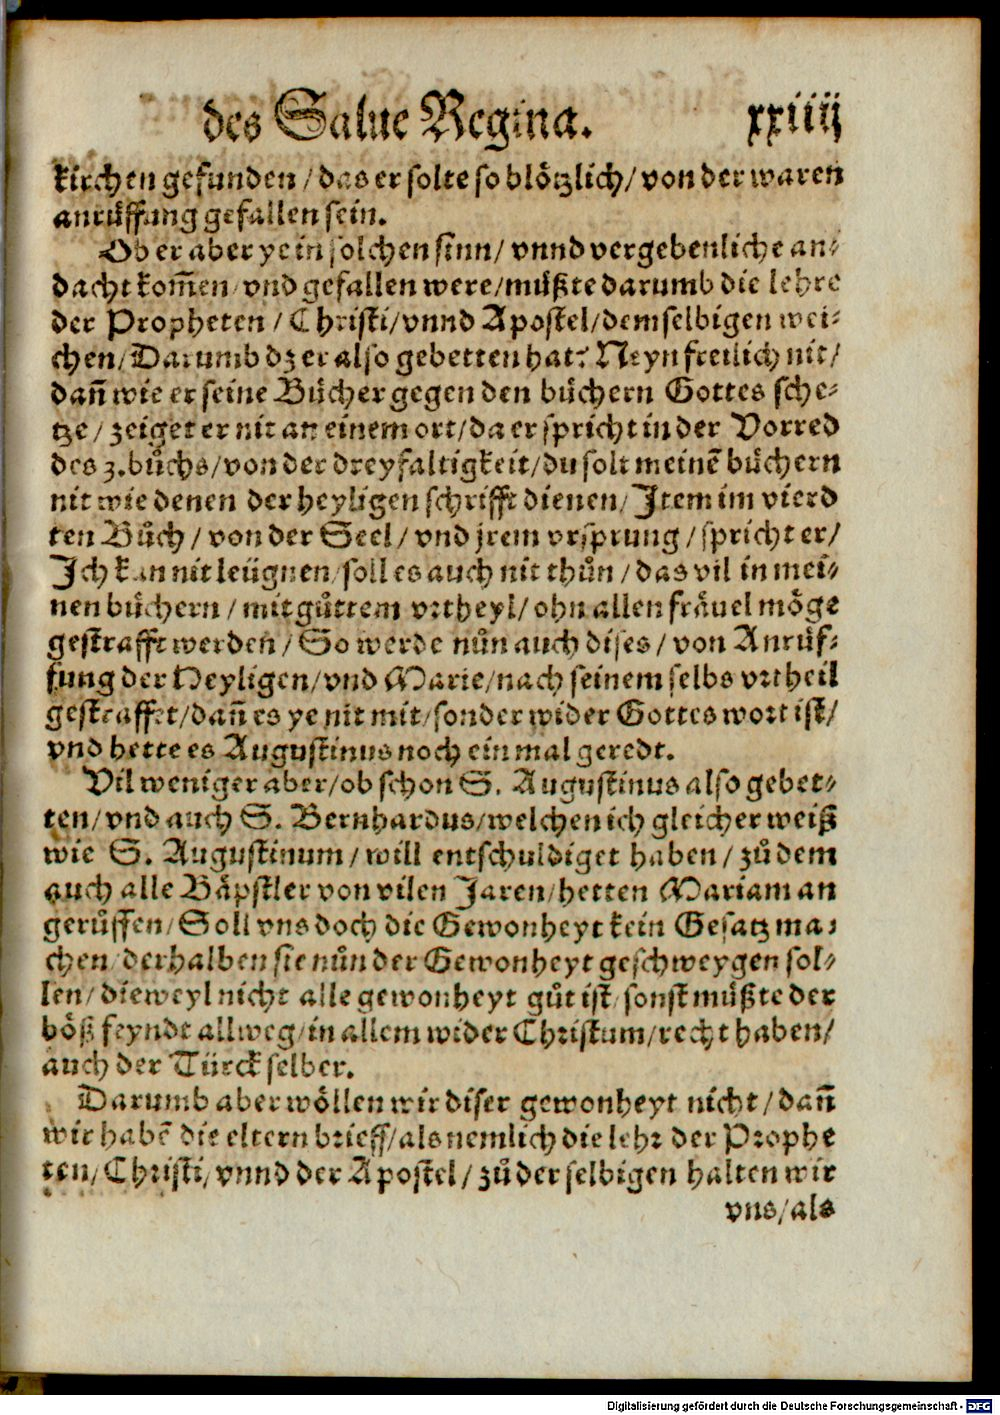 des Salue Regina. xxiiij
kirchen gefunden / das er solte so blötzlich / von der waren
anrůffung gefallen sein.
Ob er aber ye in solchen sinn / vnnd vergebenliche an⸗
dacht kom̃en / vnd gefallen were / můßte darumb die lehre
der Propheten / Christi / vnnd Apostel / demselbigen wei⸗
chen / Darumb dz er also gebetten hat? Neyn freilich nit /
dañ wie er seine Bůcher gegen den bůchern Gottes sche⸗
tze / zeiget er nit an einem ort / da er spricht in der Vorred
des 3. bůchs / von der dreyfaltigkeit / du solt meinē bůchern
nit wie denen der heyligen schrifft dienen / Item im vierd
ten Bůch / von der Seel / vnd jrem vrsprung / spricht er /
Ich kan nit leügnen / soll es auch nit thůn / das vil in mei⸗
nen bůchern / mit gůttem vrtheyl / ohn allen fräuel möge
gestrafft werden / So werde nůn auch dises / von Anrůf⸗
fung der Heyligen / vnd Marie / nach seinem selbs vrtheil
gestraffet / dañ es ye nit mit / sonder wider Gottes wort ist /
vnd hette es Augustinus noch ein mal geredt.
Vil weniger aber / ob schon S. Augustinus also gebet⸗
ten / vnd auch S. Bernhardus / welchen ich gleicher weiß
wie S. Augustinum / will entschuldiget haben / zů dem
auch alle Bäpstler von vilen Jaren / hetten Mariam an
gerůffen / Soll vns doch die Gewonheyt kein Gesatz ma⸗
chen / derhalben sie nůn der Gewonheyt geschweygen sol⸗
len / dieweyl nicht alle gewonheyt gůt ist / sonst můßte der
böß feyndt allweg / in allem wider Christum / recht haben /
auch der Türck selber.
Darumb aber wöllen wir diser gewonheyt nicht / dañ
wir habē die eltern brieff / als nemlich die lehr der Prophe
ten / Christi / vnnd der Apostel / zů der selbigen halten wir
vns / als
Digitalisierung gefördert durch die Deutsche Forschungsgemeinschaft - DFG